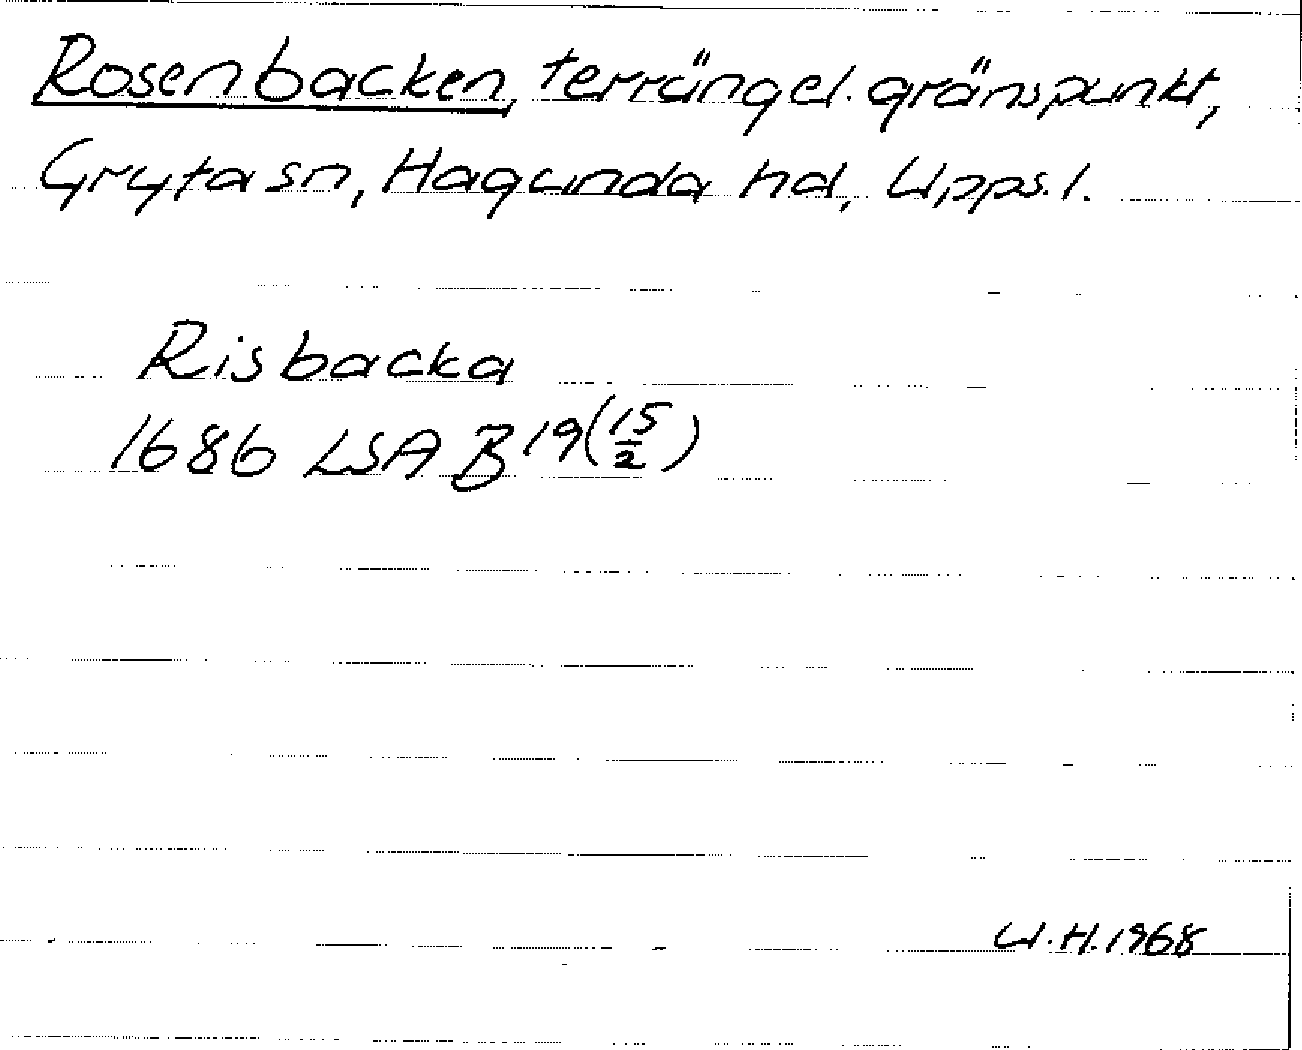 Rosenbacken, terräng el. gränspunkt,
Gryta sn, Hagunda hd, Upps. l.
Risbacka
1686 LSA B 19 (15/2)
U.H. 1968